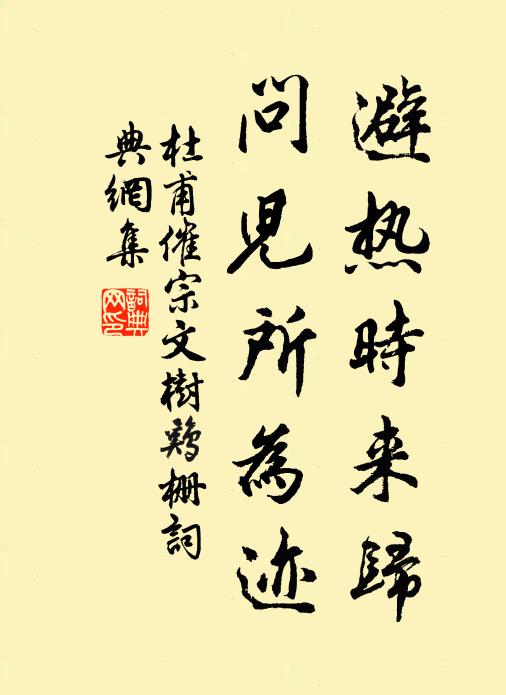 避热時来歸
問兒所為迹
杜甫催宗文樹鶏栅詞
典網集
詞典
网印